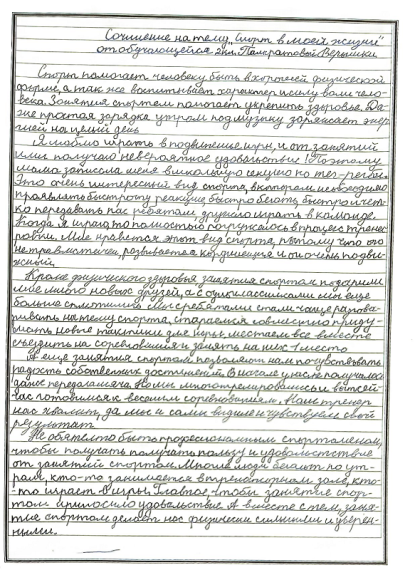 Сочинение на тему „Спорт в моей жизни"
от обучающейся 2 кл. Панкратовой Вероники
Спорт помогает человеку быть в хорошей физической
форме, а так же воспитывает характер и силу воли чело-
века. Занятия спортом помогает укрепить здоровье. Да-
же простая зарядка утром под музыку заряжает энер-
гией на целый день.
Я люблю играть в подвижные игры, и от занятий
ими получаю невероятное удовольствие! Поэтому
мама записала меня в школьную секцию по тег-регби.
Это очень интересный вид спорта, в котором необходимо
проявлять быстроту реакции, быстро бегать, быстро и чет-
ко передавать пас ребятам, дружно играть в команде.
Когда я играю, то полностью погружаюсь в процесс трениро-
ровки. Мне нравится этот вид спорта, потому что он
не травматичен, развивается координация и он очень подви-
жный.
Кроме физического здоровья занятия спортом подарили
мне много новых друзей, а с одноклассниками мы еще
больше сплотились. Мы с ребятами стали чаще разгова-
ривать на тему спорта, стараемся совместно приду-
мывать новые тактики для игры, мечтаем все вместе
съездить на соревнования и занять на них 1 место.
А еще занятия спортом позволяют нам почувствовать
радость собственных достижений. В начале у нас не получалась
даже передача мяча. Но мы много тренировались и вот сей-
час готовимся к весенним соревнованиям. Наш тренер
нас хвалит, да мы и сами видим и чувствуем свой
результат.
Не обязательно быть профессиональным спортсменом,
чтобы получать получать пользу и удовольствие
от занятий спортом. Многие люди бегают по ут-
рам, кто-то занимается в тренажерном зале, кто-
-то играет в игры. Главное, чтобы занятие спор-
том приносило удовольствие. А вместе с тем, заня-
тие спортом делает нас физически сильными и уверен-
ными.